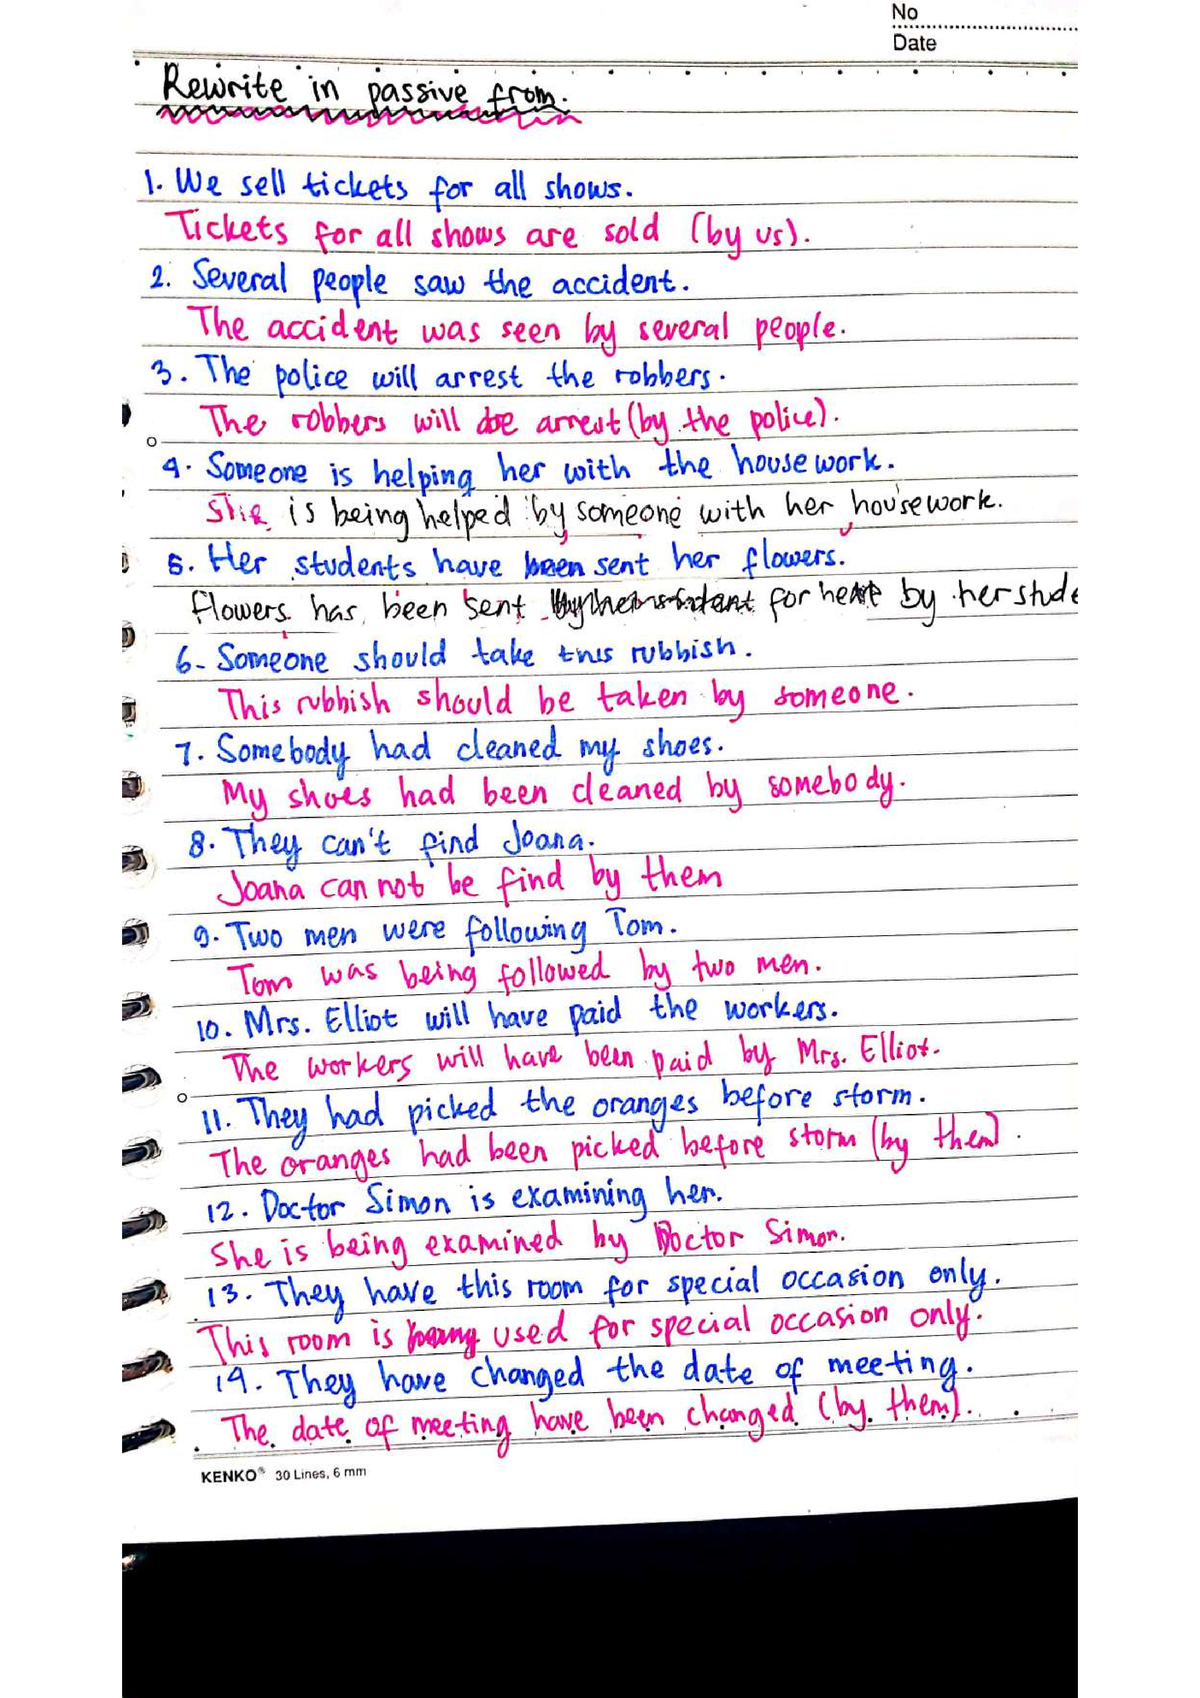 No
Date
Rewrite in passive from.
1. We sell tickets for all shows.
Tickets for all shows are sold (by us).
2. Several people saw the accident.
The accident was seen by several people.
3. The police will arrest the robbers.
The robbers will be arrest (by the police).
4. Someone is helping her with the housework.
She is being helped by someone with her housework.
5. Her students have been sent her flowers.
flowers has been sent for her by her stude
6. Someone should take this rubbish.
This rubbish should be taken by someone.
7. Somebody had cleaned my shoes.
My shoes had been cleaned by somebody.
8. They can't find Joana.
Joana can not be find by them
9. Two men were following Tom.
Tom was being followed by two men.
10. Mrs. Elliot will have paid the workers.
The workers will have been paid by Mrs. Elliot.
11. They had picked the oranges before storm.
The oranges had been picked before storm (by them).
12. Doctor Simon is examining her.
She is being examined by Doctor Simon.
13. They have this room for special occasion only.
This room is used for special occasion only.
14. They have changed the date of meeting.
The date of meeting have been changed (by them).
KENKO® 30 Lines, 6 mm